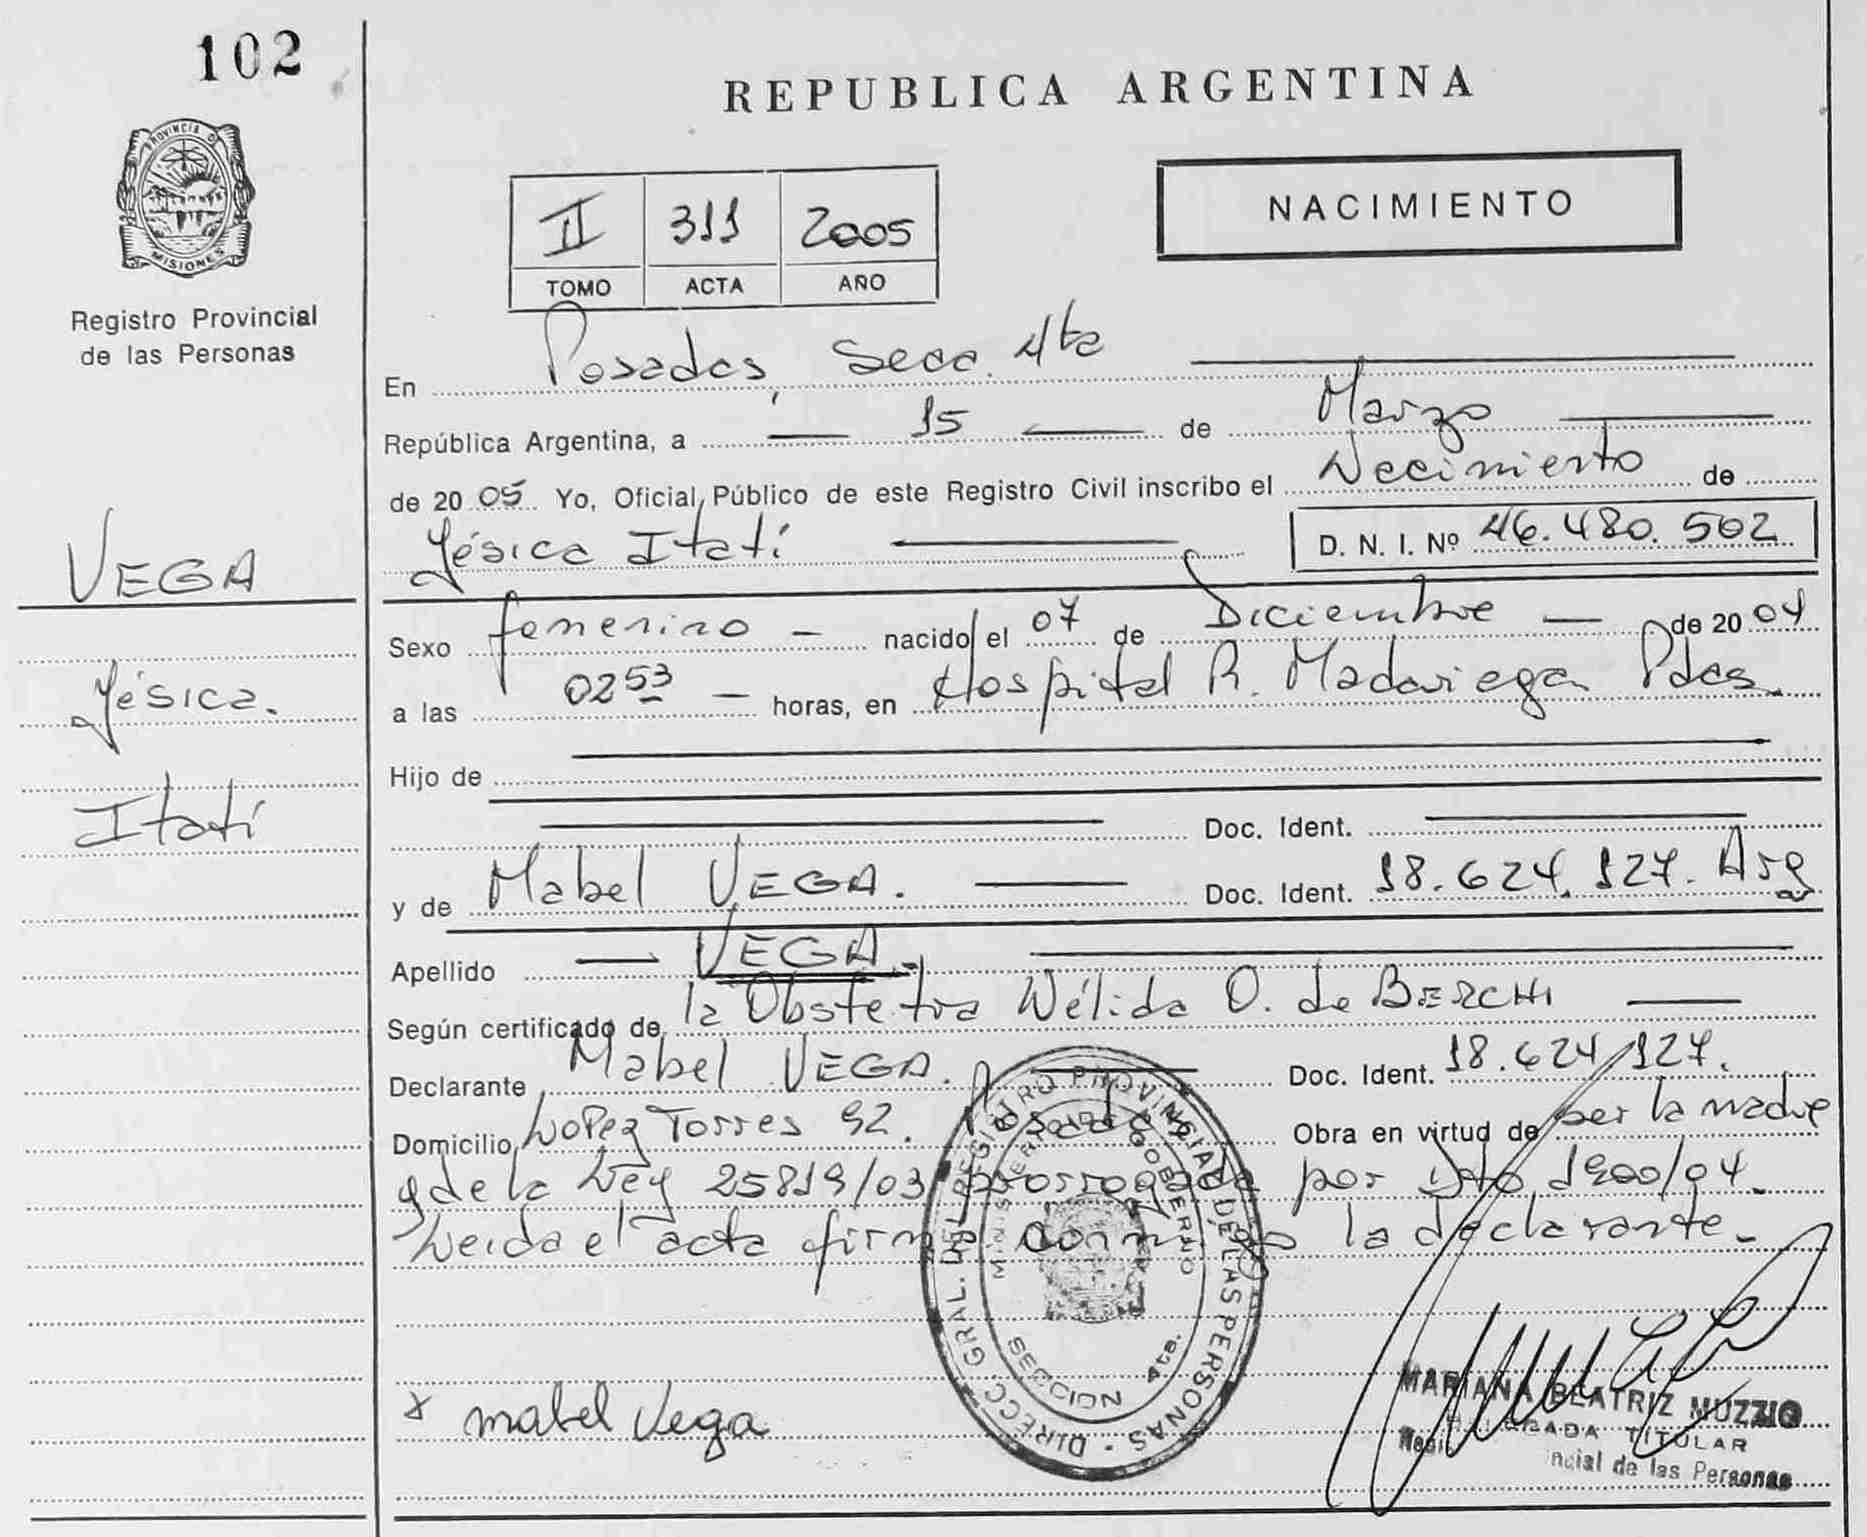 102
PROVINCIA D
MISIONES
Registro Provincial
de las Personas
VEGA
Yésica.
Itatí
REPUBLICA ARGENTINA
NACIMIENTO
II 311 2005
TOMO ACTA AÑO
En Posadas, Secc. 4ta
República Argentina, a 15 de Marzo
de 20 05 Yo, Oficial Público de este Registro Civil inscribo el Nacimiento de
Yésica Itatí D. N. I. Nº 46.480.502
Sexo femenino nacido el 07 de Diciembre de 20 04
a las 0253 horas, en Hospital R. Madariaga Pdas.
Hijo de
Doc. Ident.
y de Mabel VEGA. Doc. Ident. 18.624.127. Arg
Apellido VEGA.
Según certificado de la Obstetra Nélida O. de BERCHI
Declarante Mabel VEGA. Doc. Ident. 18.624.127.
Domicilio López Torres 92. Posadas Obra en virtud de ser la madre
y de la Ley 25819/03 prorrogada por Dto 1900/04.
Leida el acta firma conmigo la declarante.
DIRECC. GRAL. DEL REGISTRO PROVINCIAL DE LAS PERSONAS
MINISTERIO DE GOBIERNO
SECCION 4ta.
x mabel Vega
MARIANA BEATRIZ MUZZIO
TITULAR
de las Personas